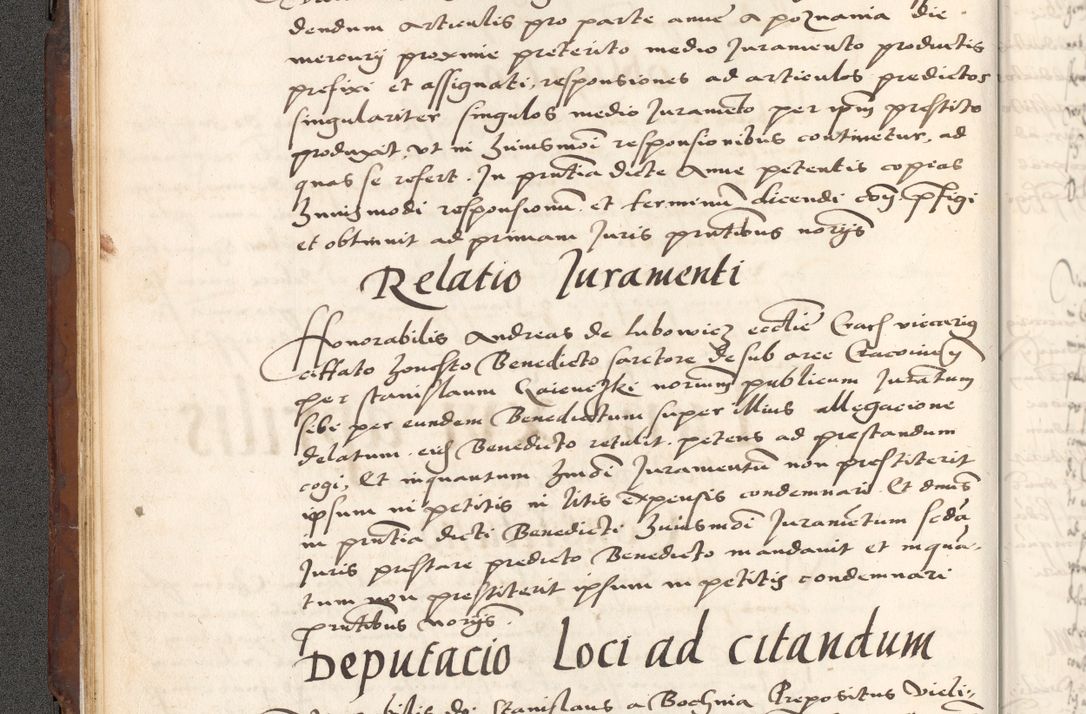 dendum articulis pro parte anne a poznania die
mercurij proxime preterito medio Juramento productis
prefixi et assignati, responsiones ad articulos predictos
singulariter singulos medio Juramēto per ipm prestito
produxit, ut in huiusmōi responsionibus continetur, ad
quas se refert. In pn̄tia dicte Anne petentis copias
huiusmodi responsionū et terminū dicendi
et obtinuit ad primam Juris pn̄tibus norijs
Relatio Juramenti
Honorabilis Andreas de lubowicz ecclīe Crac viccarius
ceffato honesto Benedicto sartore de sub arce Cracovien
per stanislaum norium publicum Juratum
sibi per eundem Benedictum super illius allegacione
delatum eid Benedicto retulit. petens ad prestandum
cogi, Et inquantum hmōi Juramentū non prestiterit
ipsum in petitis in litis expensis condemnari Et dn̄us
in pn̄tia dicti Benedicti huiusmōi Juramētum scdā
Juris prestare predicto Benedicto mandavit et inquā-
tum non prestiterit ipsum in petitis condemnari
pn̄tibus norijs.
Deputacio loci ad citandum
dn̄s Stanislaus a Bochnia Prepositus Vieli-